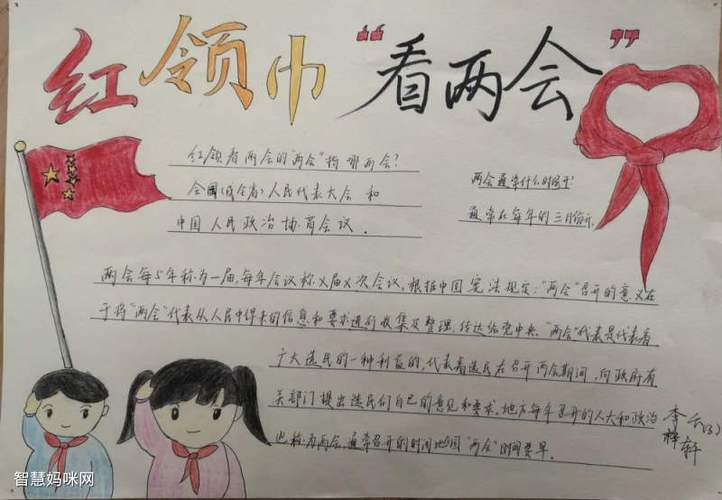 红领巾“看两会”
红领看两会的“两会”指哪两会?
全国(或全省)人民代表大会 和
中国人民政治协商会议.
两会通常什么时候开?
通常在每年的三月份开.
两会每5年称为一届,每年会议称X届X次会议.根据中国宪法规定:“两会”召开的意义在
于将“两会”代表从人民中得来的信息和要求进行收集及整理,传达给党中央.“两会”代表是代表着
广大选民的一种利益的,代表着选民在召开两会期间,向政府有
关部门提出选民们自己的意见和要求.地方每年召开的人大和政治
也称看两会,通常召开的时间比全国“两会”时间要早.
李梓轩
(3)
智慧妈咪网